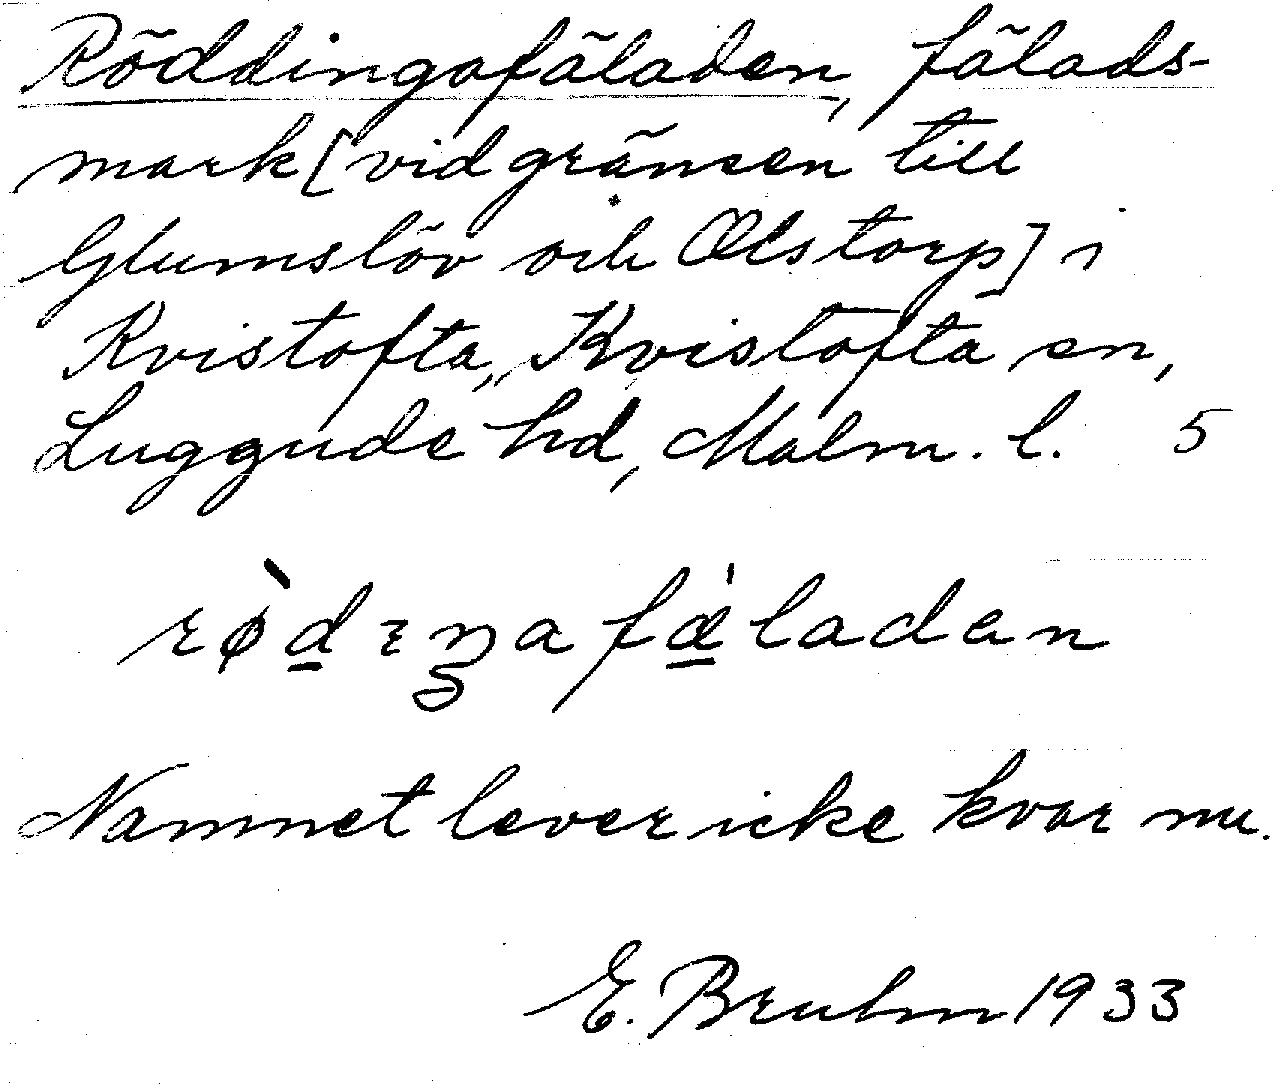 Röddingafäladen, fälads-
mark [vid gränsen till
Glumslöv och Ålstorp] i
Kvistofta, Kvistofta sn,
Luggude hd, Malm. l. 5
Namnet lever icke kvar nu.
E. Bruhn 1933